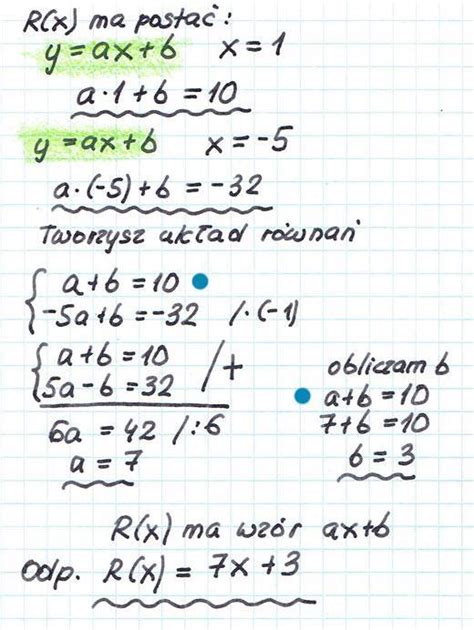 R(x) ma postać:
y = ax+b x = 1
a·1+b = 10
y = ax+b x = -5
a·(-5)+b = -32
Tworzysz układ równań
a+b = 10
-5a+b = -32 /·(-1)
a+b = 10
5a-b = 32 /+
6a = 42 /:6
a = 7
obliczam b
a+b = 10
7+b = 10
b = 3
R(x) ma wzór ax+b
Odp. R(x) = 7x+3